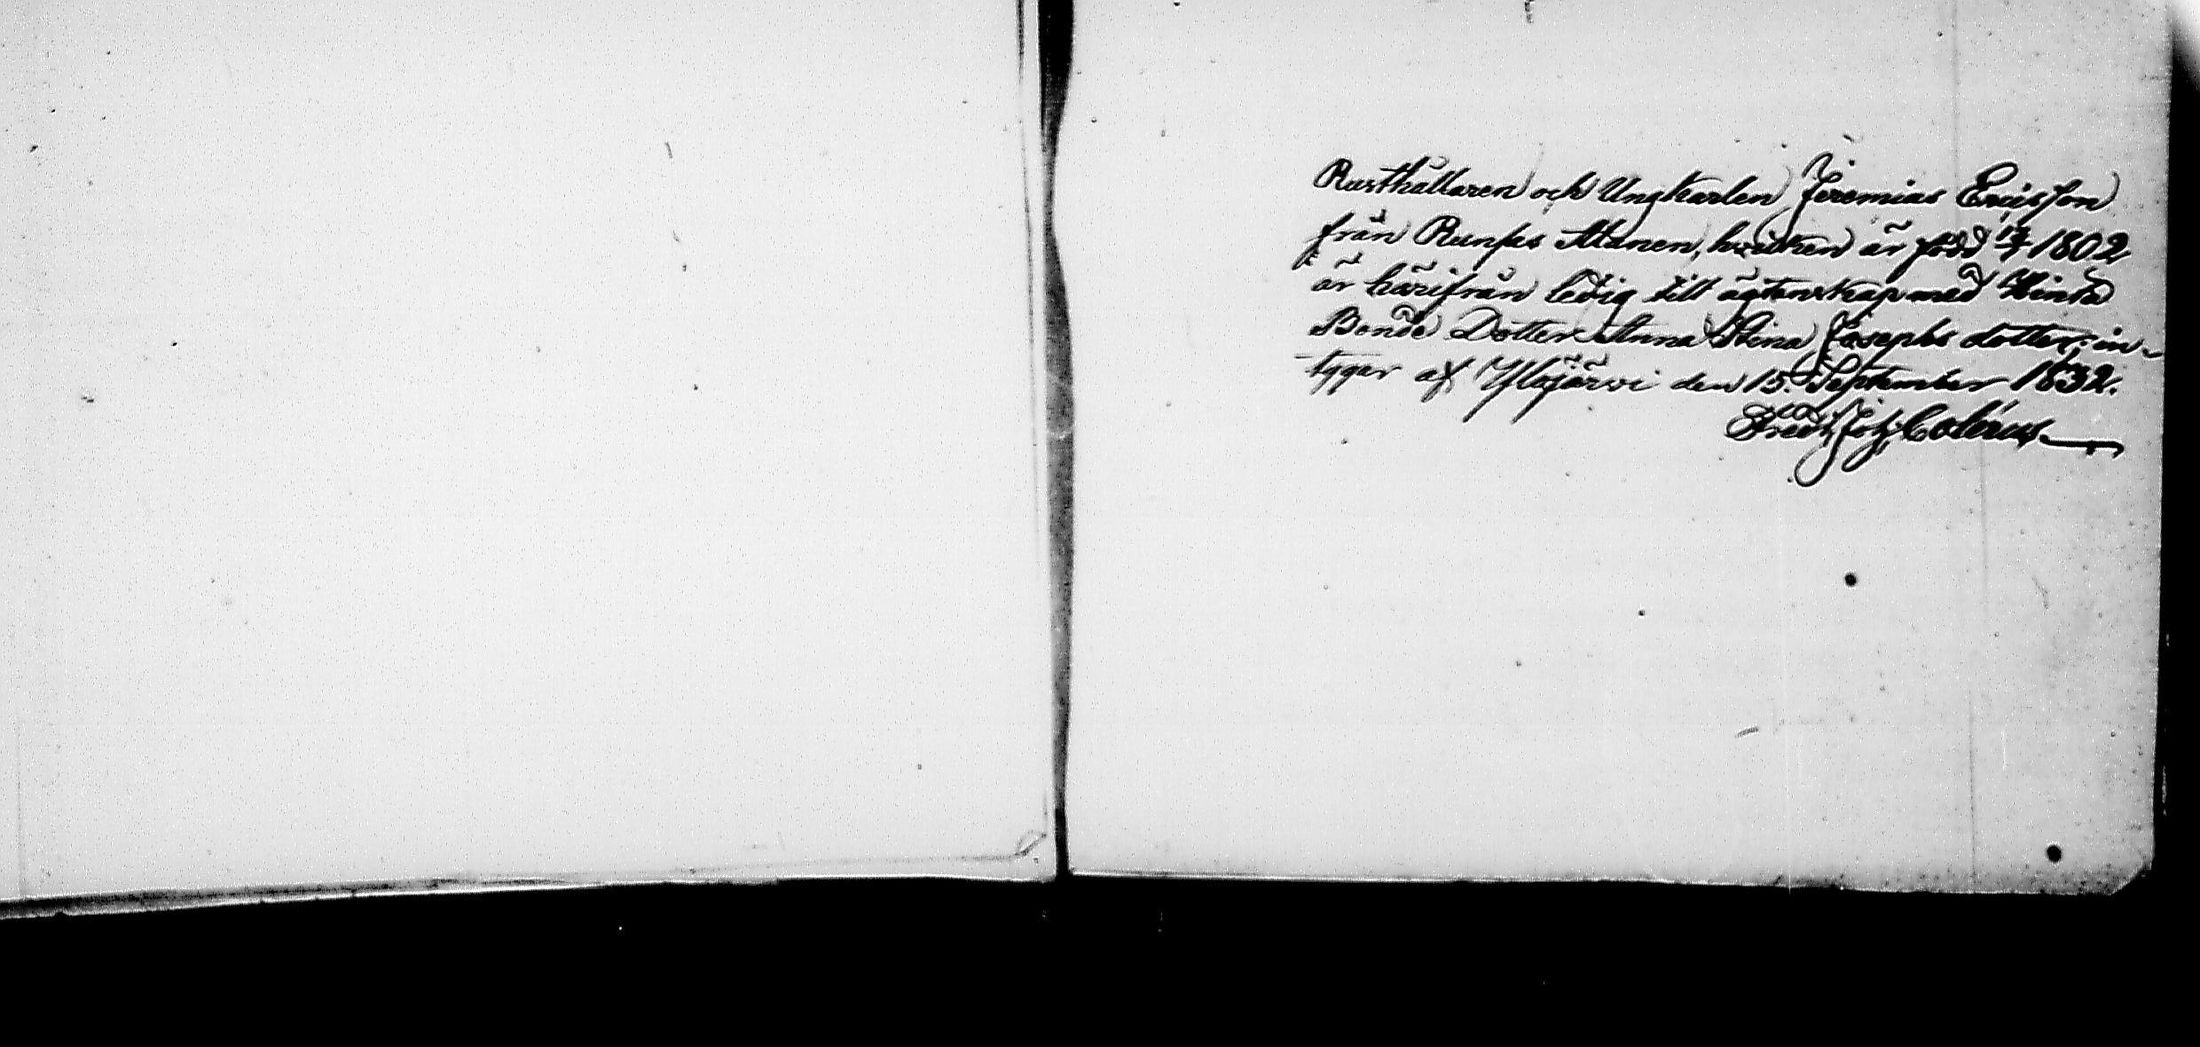 Rusthållaren och Ungkarlen Jeremias Ericsson
från Runsas Alanen, hvilken är född 1802
är härifrån ledig till ägtenskap med
Bonde Dotter Anna Stina Josephs dotter; in-
tygar af Ylöjärvi den 15. September 1832.
Fredr. Joh. Colérus